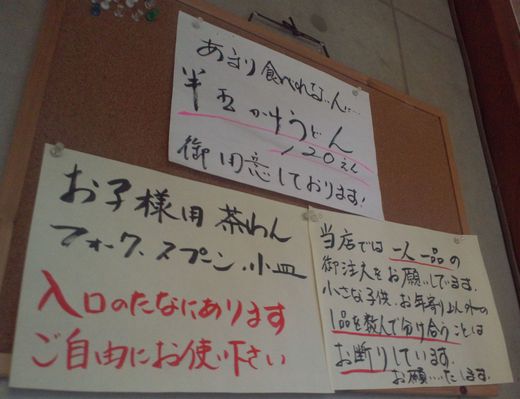 あまり食べれない人に…
半玉かけうどん
120えん
御用意しております!
お子様用茶わん
フォーク、スプーン、小皿
入口のたなにあります
ご自由にお使い下さい
当店では一人一品の
御注文をお願いしています。
小さな子供、お年寄り以外の
1品を数人で分け合うことは
お断りしています。
お願いいたします。